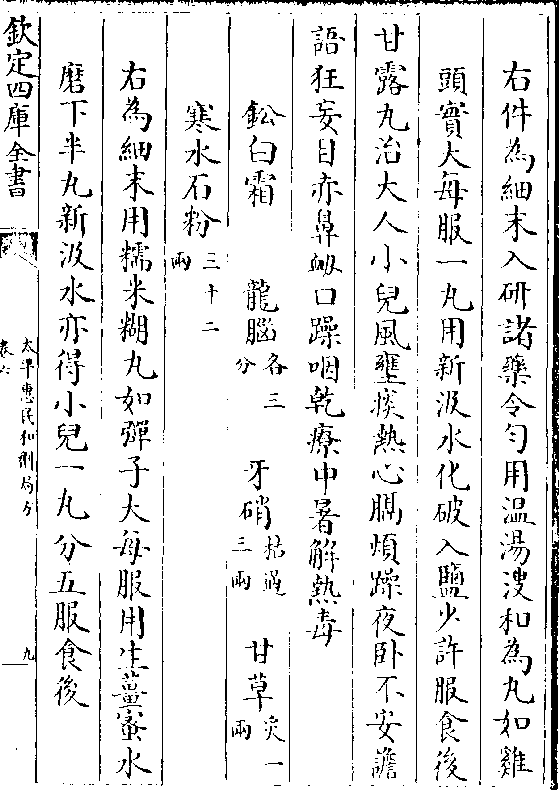 右件為細末入研諸藥令勻用温湯溲和為丸如雞
頭實大每服一丸用新汲水化破入鹽少許服食後
甘露丸治大人小兒風壅痰熱心膈煩躁夜卧不安譫
語狂妄目赤鼻衂口躁咽乾療中暑解熱毒
鉛白霜 龍腦各三分 牙硝枯過三兩 甘草炙一兩
寒水石粉三十二兩
右為細末用糯米糊丸如彈子大每服用生薑蜜水
磨下半丸新汲水亦得小兒一丸分五服食後
欽定四庫全書
太平惠民和劑局方
卷六
九